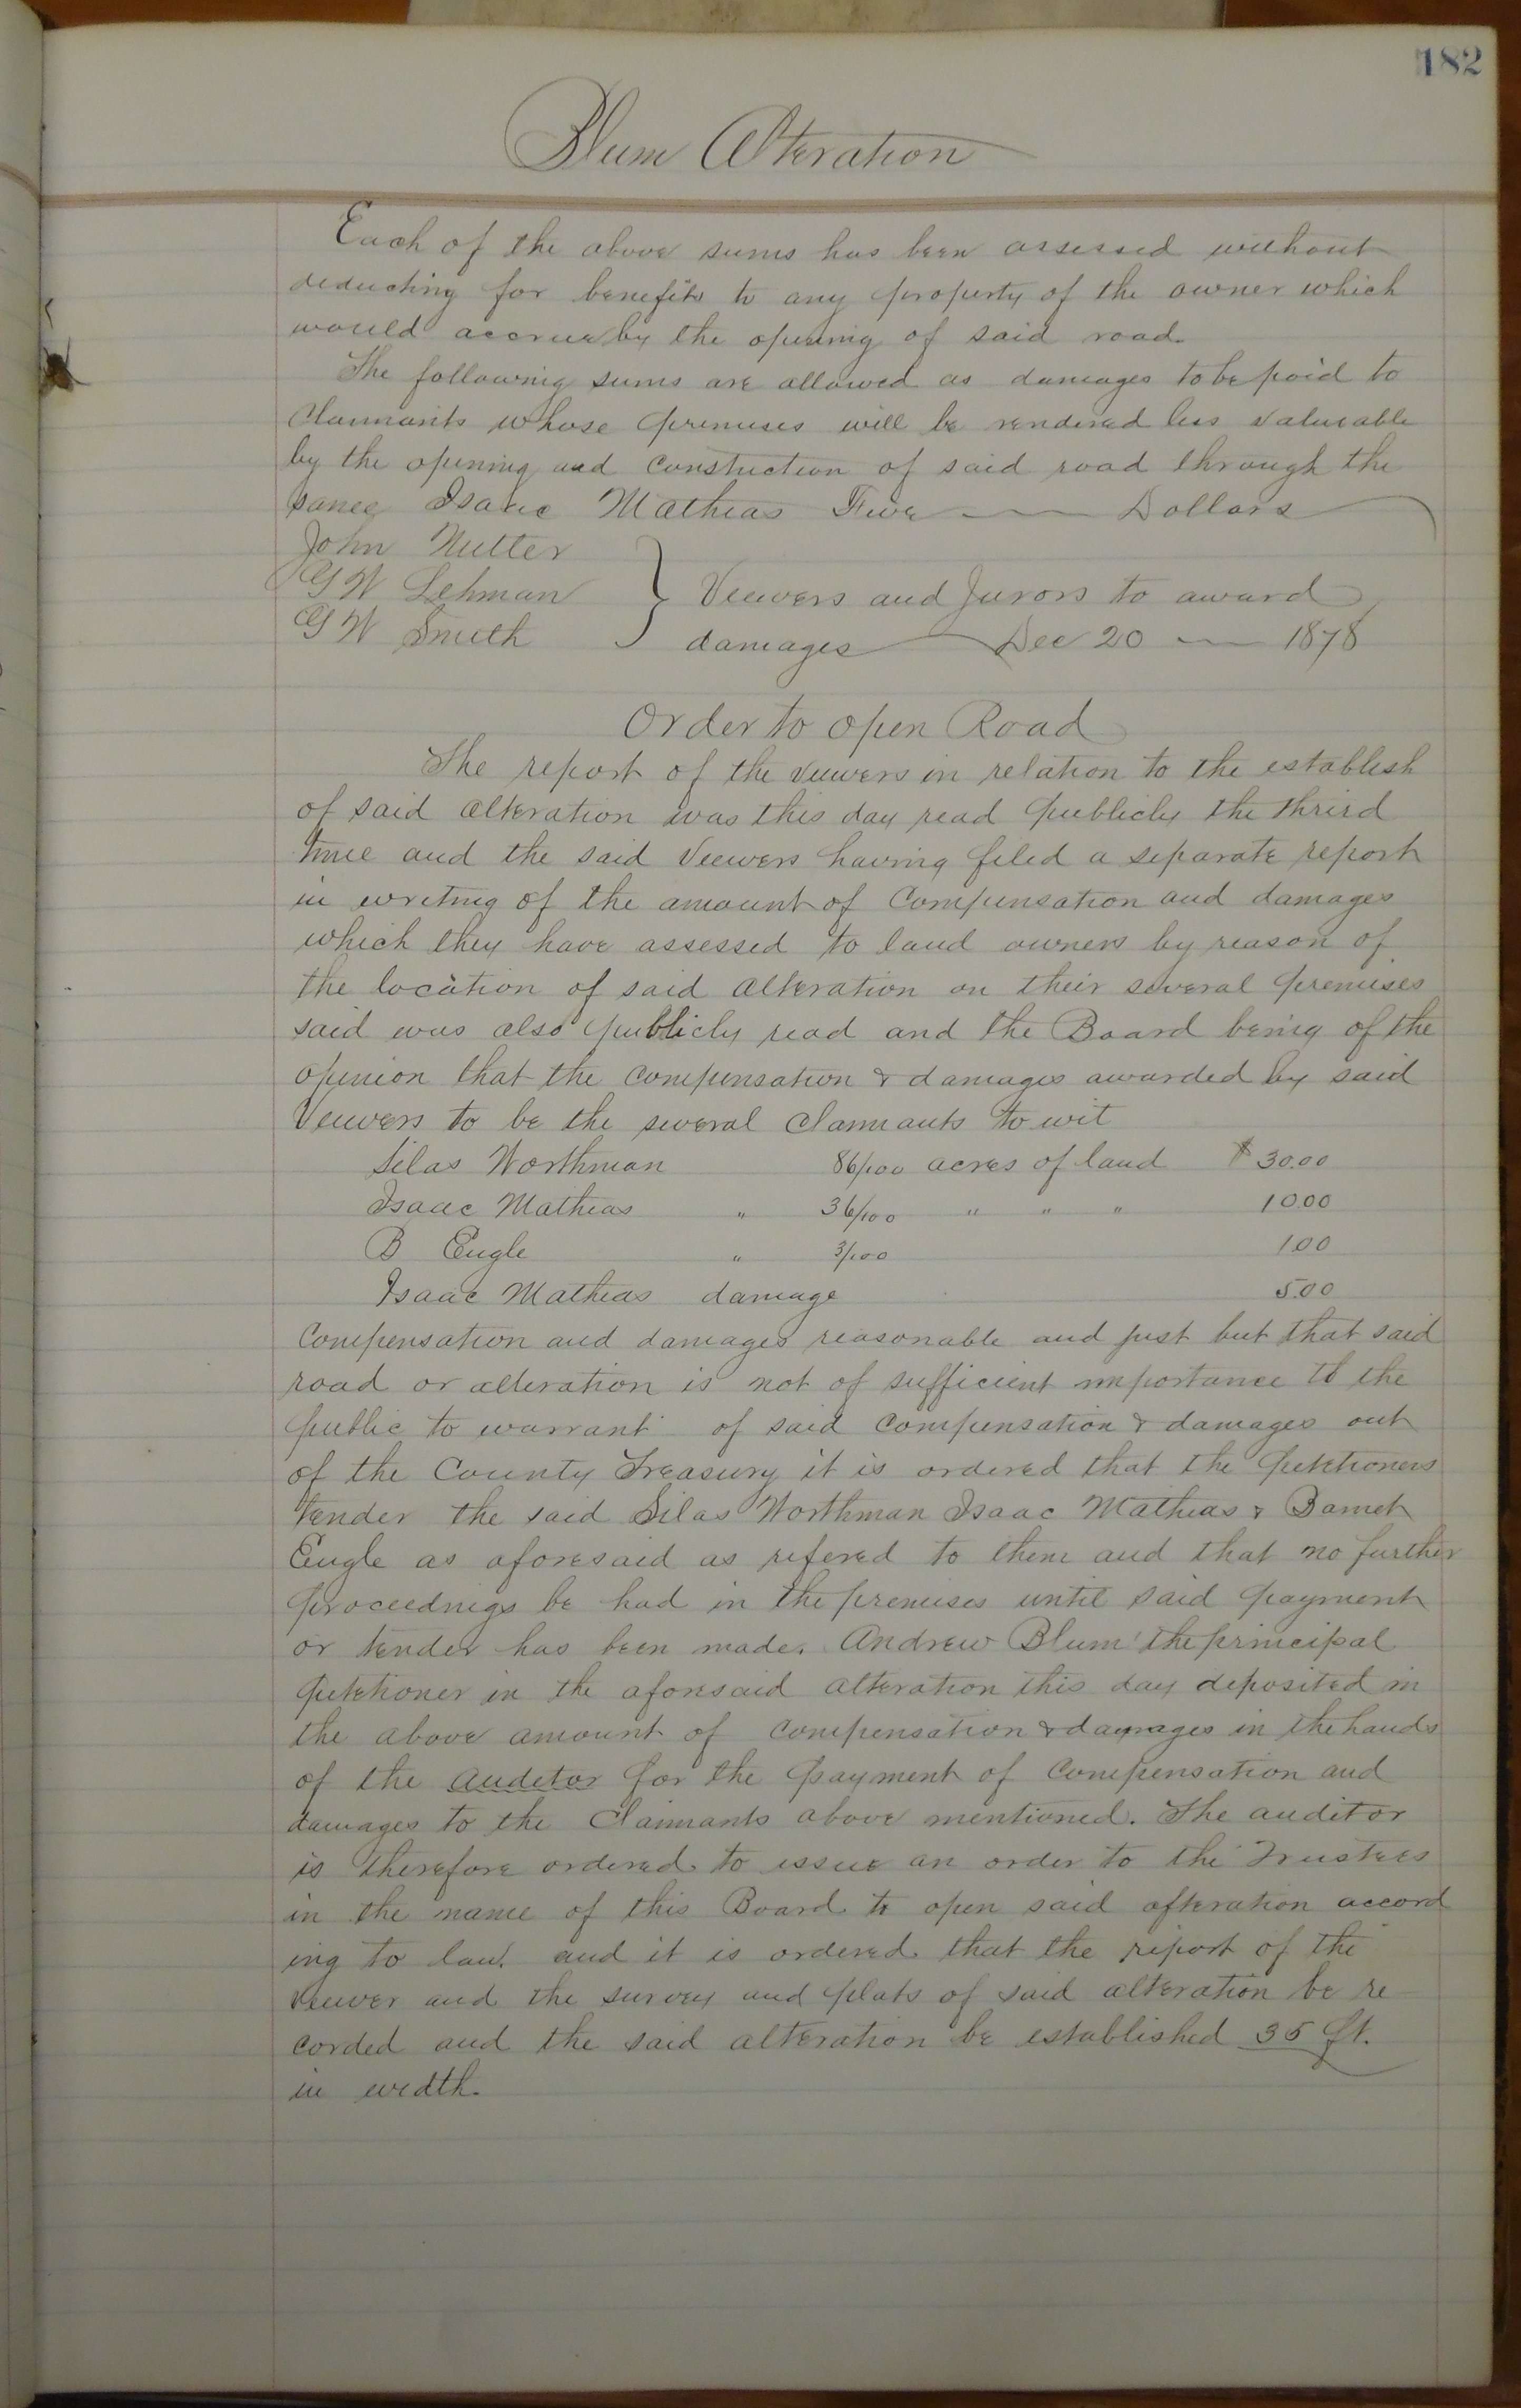 182
Blum Alteration
Each of the above sums has been assessed without
deducting for benefits to any property of the owner which
would accrue by the opening of said road.
The following sums are allowed as damages to be paid to
Claimants whose premises will be rendered less valueable
by the opening and constuction of said road through the
same Isaac Mathias Five Dollars
John Nutter
G W Lehman } Viewers and Jurors to award
G W Smith damages Dec 20 1878
Order to open Road
The report of the viewers in relation to the establish
of said alteration was this day read publicly the thrird
time and the said Viewers having filed a separate report
in writing of the amount of Compensation and damages
which they have assessed to land owners by reason of
the location of said alteration on their several premises
said was also publicly read and the Board being of the
opinion that the compensation & damages awarded by said
Viewers to be the several claimants to wit
Silas Worthman 86/100 acres of land $30.00
Isaac Mathias " 36/100 " " " 10.00
B Eugle " 3/100 1.00
Isaac Mathias damage 5.00
Compensation and damages reasonable and just but that said
road or alteration is not of sufficient importance to the
public to warrant of said compensation & damages out
of the County Treasury it is ordered that the petetioners
tender the said Silas Worthman Isaac Mathias & Barnet
Eugle as aforesaid as refered to them and that no further
proceedings be had in the premises until said payment
or tender has been made. Andrew Blum the principal
petetioner in the aforesaid alteration this day deposited in
the above amount of compensation & damages in the hands
of the auditor for the payment of Compensation and
damages to the Claimants above mentioned. The auditor
is therefore ordered to issue an order to the Trustees
in the name of this Board to open said alteration accord
ing to law. and it is ordered that the report of the
viewer and the survey and plats of said alteration be re
corded and the said alteration be established 35 ft.
in width.